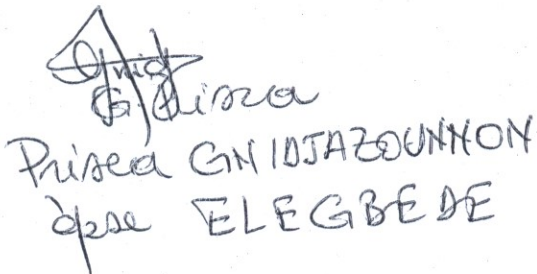 G. Prisca
Prisca GNIDJAZOUNNON
épse ELEGBEDE